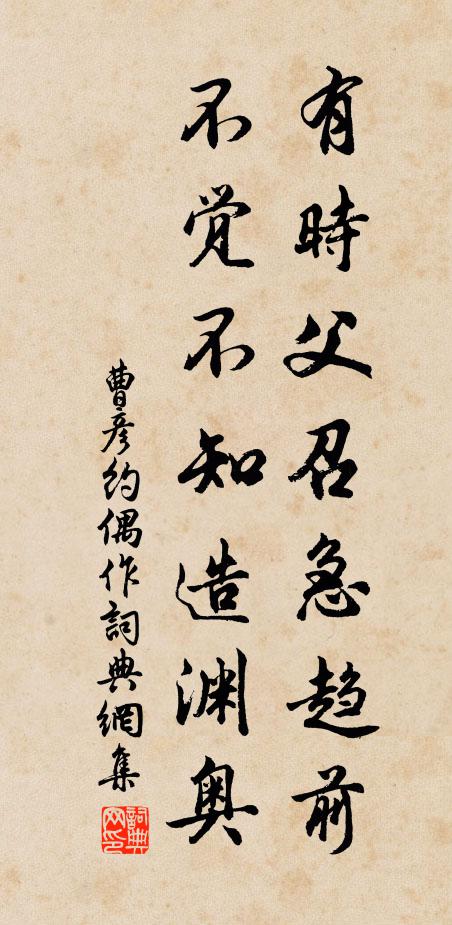 有時父召急趋前
不觉不知造渊奥
曹彦约偶作詞典網集
詞典网印